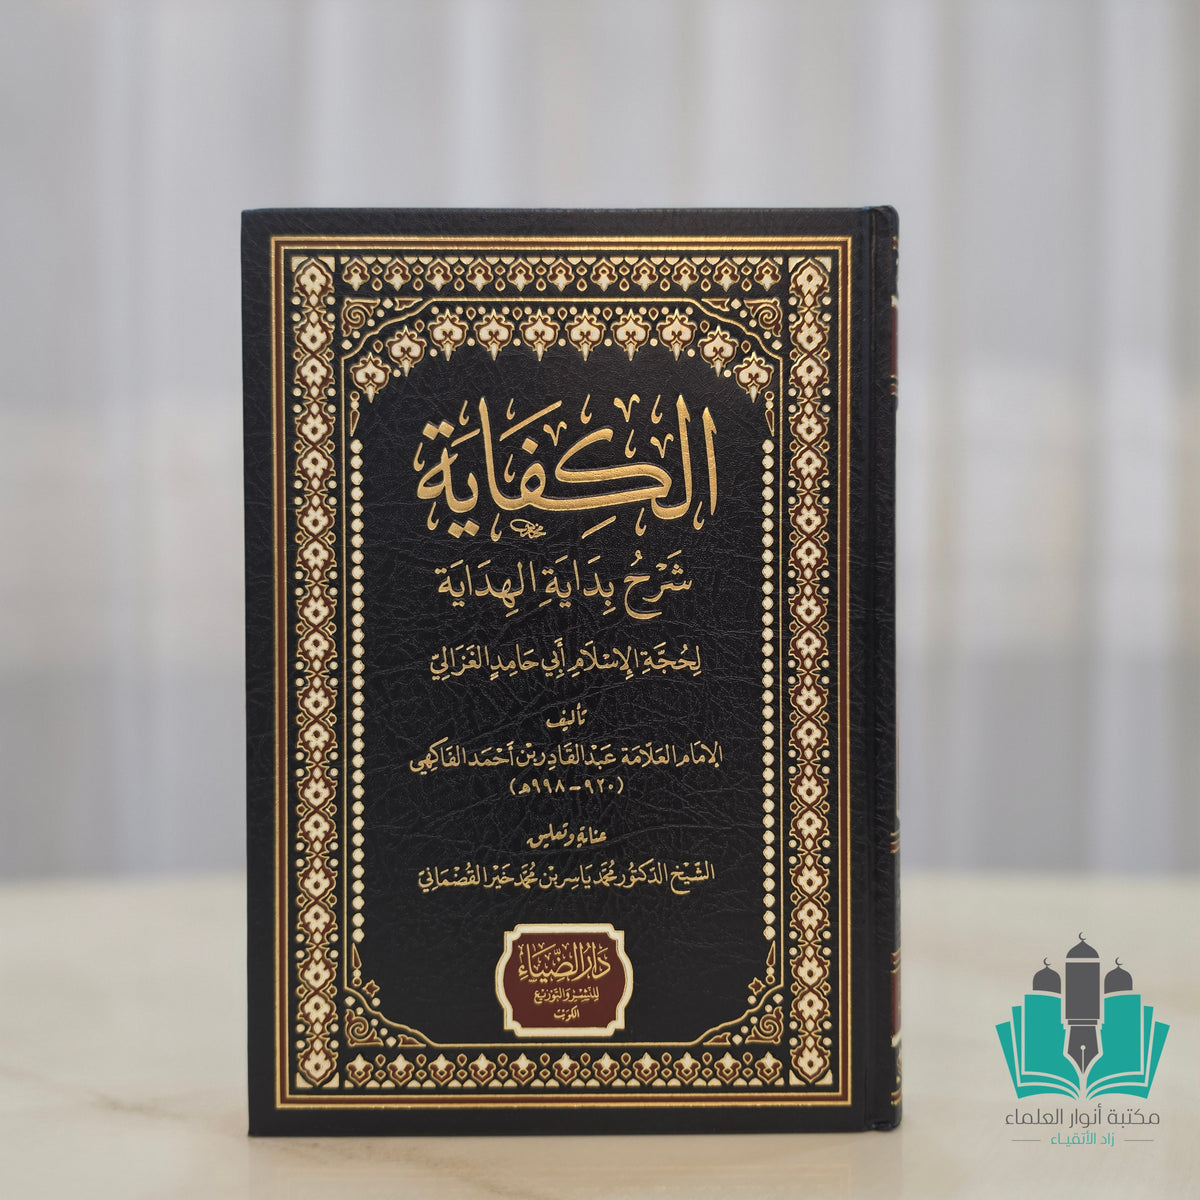 الكِفَايَة
شَرْحُ بِدَايَةِ الهِدَايَة
لِحُجَّةِ الإِسْلَامِ أَبِي حَامِدٍ الغَزَالِيّ
تأليف
الإمَام العَلّامَة عَبْد القَادِر بْن أَحْمَد الفَاكِهِي
(٩٢٠ - ٩٩٨هـ)
عناية وتعليق
الشّيْخ الدّكتُور مُحَمَّد يَاسِر بْن مُحَمَّد خَيْر القُضْمَانِيّ
دَارُ الضِّيَاء
لِلنَّشْرِ وَالتَّوْزِيع
الكويت
مكتبة أنوار العلماء
زاد الأتقياء